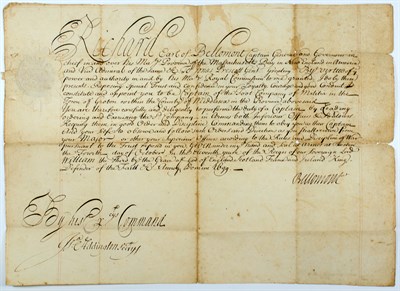 Richard Earl of Bellomont Captain General and Governour in
cheif in and over his Majtys Province of the Massachusetts Bay in New England in America
and Vice Admiral of the same To Gent Greeting By virtue of the
power and authority in and by his Majtys Royal Commission to me granted I do by these
presents Reposing special trust and confidence in your Loyalty Courage and good Conduct
constitute and appoint you to be Captain of the Foot Company of Militia in the
Town of Groton within the County of Middlesex in the Province abovesaid
You are therefore carefully and diligently to discharge the Duty of a Captain by Leading
Ordering and Exercising the sd Company in Arms both inferiour Officers & Soldiers
Keeping them in good Order and Discipline Commanding them to obey you as their Captain
And your self to observe and follow such Orders and Directions as you shall receive from
Major or other your Superiour Officers according to the Rules and Discipline of War
pursuant to the Trust reposed in you Given under my hand and Seal at Arms at Boston
the Fourth day of October In the Eleventh year of the Reign of our Sovereign Lord
William the Third by the Grace of God of England Scotland France and Ireland King
Defender of the Faith &c Annoq Domini 1699
Bellomont
By his Extys Command
Isa Addington Secry